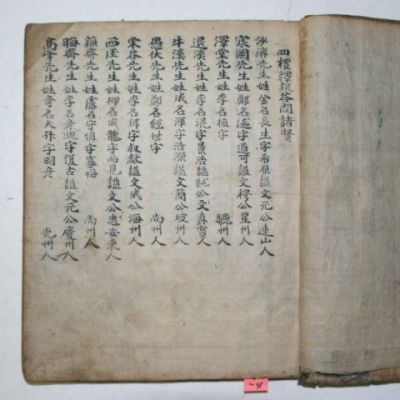 四禮釋疑答問諸賢
沙溪先生姓金名長生字希元謚文元公連山人
寒岡先生姓鄭名逑字道可謚文穆公星州人
澤堂先生姓李名植字 驪州人
退溪先生姓李名滉字景浩謚純公文真寶人
牛溪先生姓成名渾字浩原謚文簡公坡州人
愚伏先生姓鄭名經世字 尚州人
栗谷先生姓李名珥字叔獻謚文成公海州人
西厓先生姓柳名成龍字而見謚文忠公安東人
蘇齋先生姓盧名守慎字寡悔 尚州人
晦齋先生姓李名彦迪字復古謚文元公慶州人
高峰先生姓奇名大升字明彦 光州人